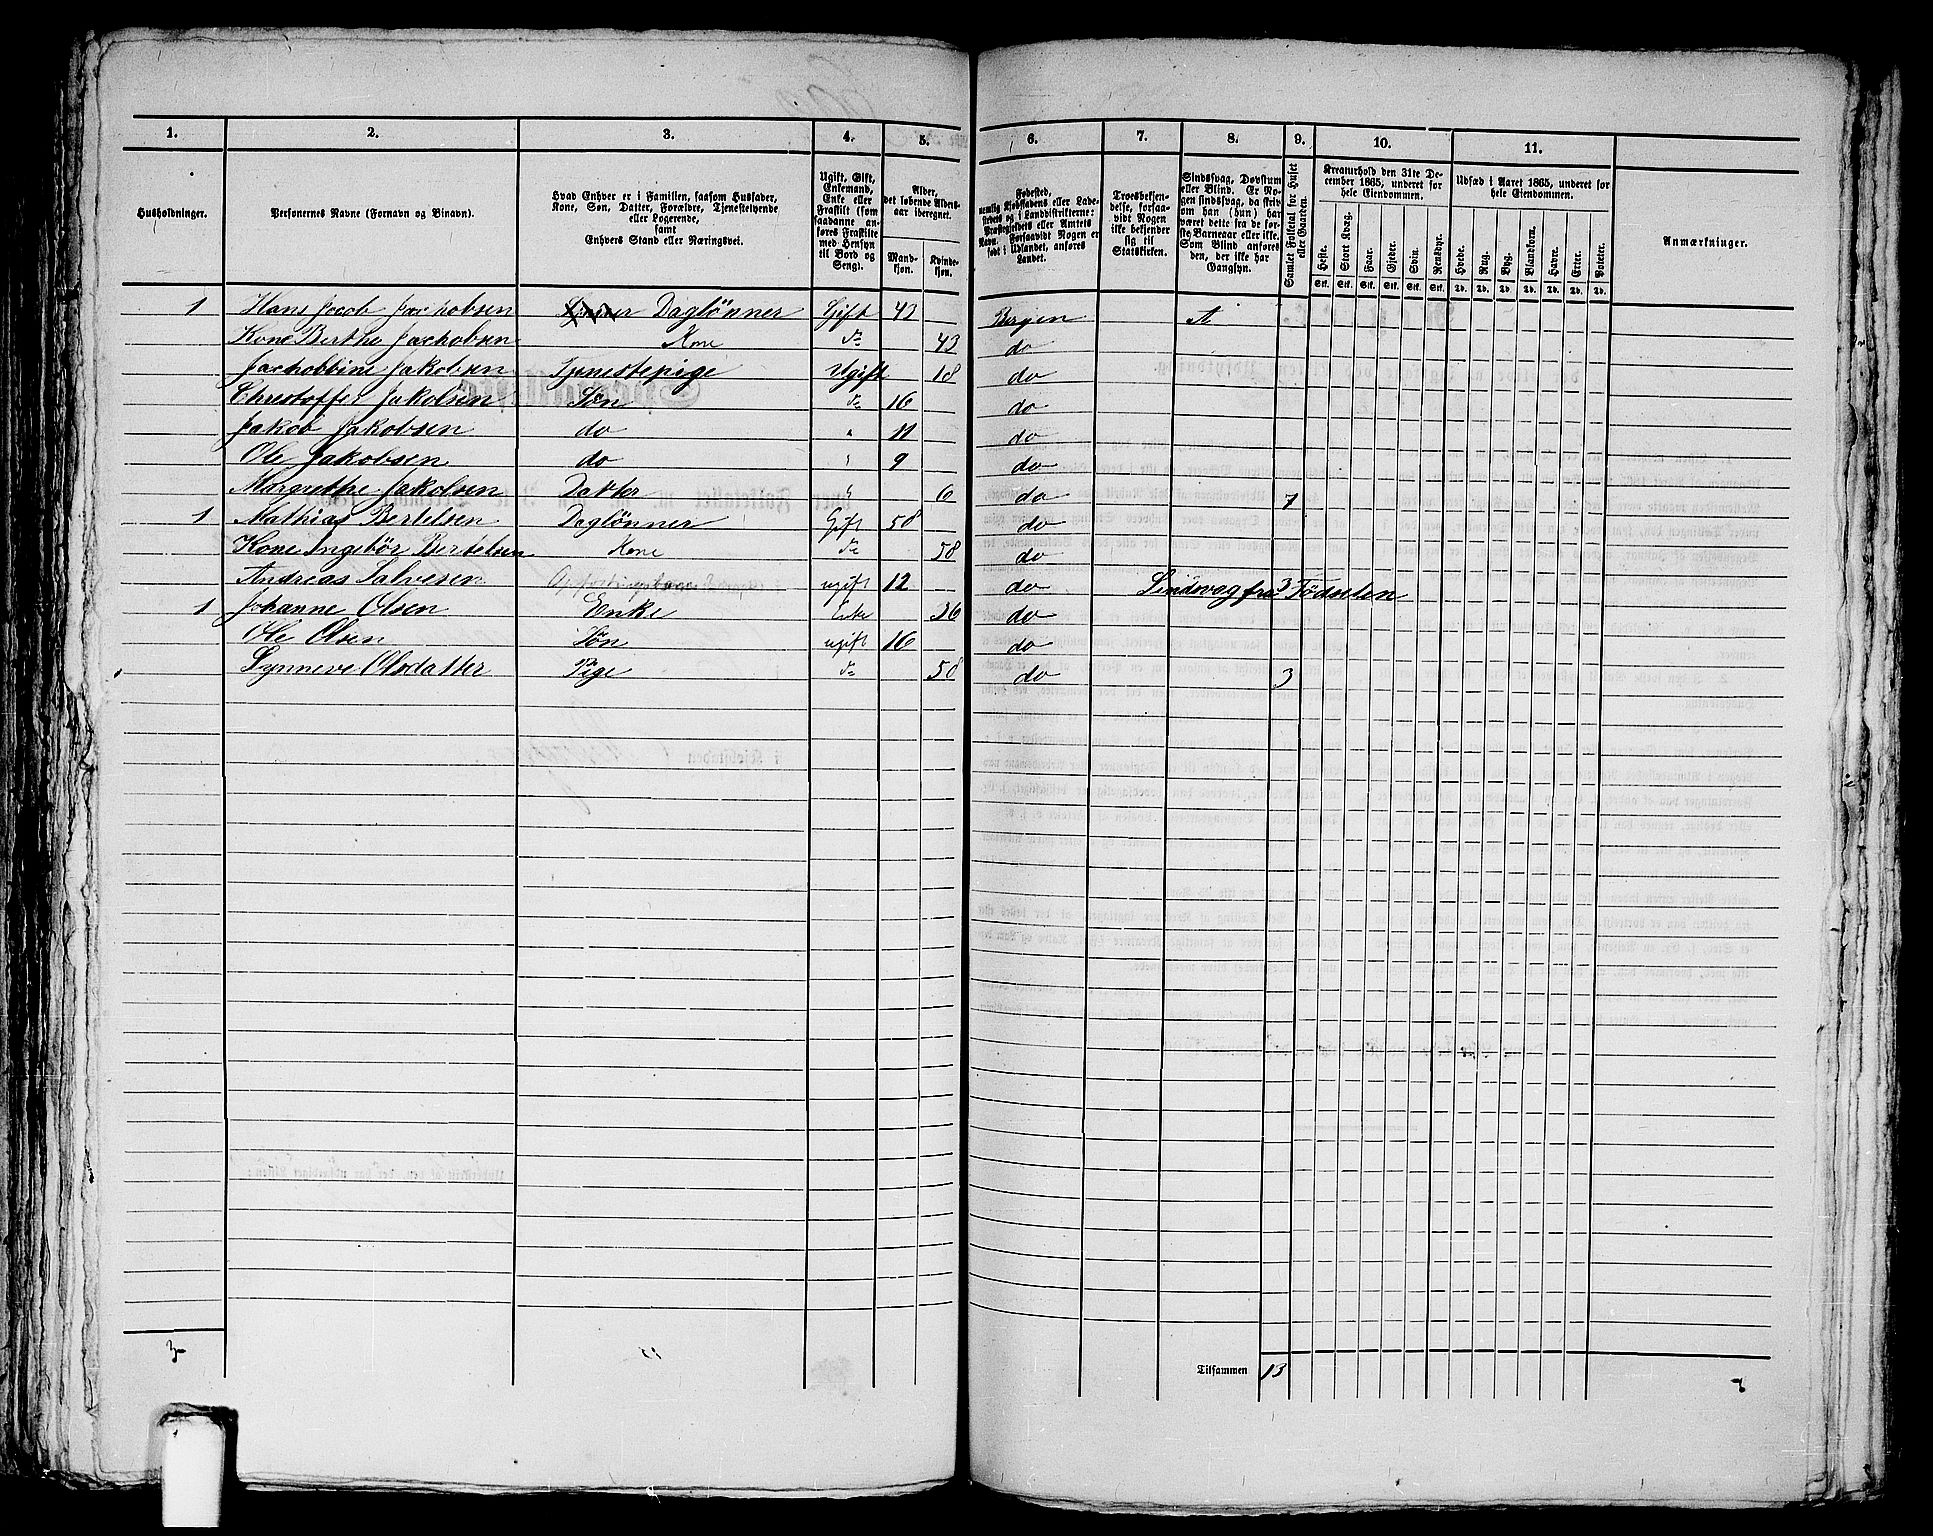 1. 2. 3. 4. 5. 6. 7. 8. 9. 10. 11.
Husholdninger.
Personernes Navne (Fornavn og Binavn).
Hvad Enhver er i Familien, saasom Husfader,
Kone, Søn, Datter, Forældre, Tjenestetyende
eller Logerende,
samt
Enhvers Stand eller Næringsvei.
Ugift, Gift,
Enkemand,
Enke eller
Fraskilt (som
saadanne an-
føres Fraskilte
med Hensyn
til Bord og
Seng).
Alder,
det løbende Alders-
aar iberegnet.
Mand-
kjøn.
Kvinde-
kjøn.
Fødested,
nemlig Kjøbstadens eller Lade-
stedets og i Landdistrikterne:
Præstegjeldets eller Amtets
Navn. Forsaavidt Nogen er
født i Udlandet, anføres
Landet.
Troesbekjen-
delse, forsaa-
vidt Nogen
ikke bekjender
sig til
Statskirken.
Sindssvag, Døvstum
eller Blind. Er No-
gen sindssvag, da skriv
om han (hun) har
været dette fra de før-
ste Barneaar eller ikke.
Som Blind anføres
den, der ikke har
Gangsyn.
Samlet Folketal for Huset
eller Gaarden.
Kreaturhold den 31te De-
cember 1865, underet for
hele Eiendommen.
Heste. Stort Kvæg. Faar. Gjeder. Svin. Rensdyr.
Stk. Stk. Stk. Stk. Stk. Stk.
Udsæd i Aaret 1865, underet for
hele Eiendommen.
Hvede. Rug. Byg. Blandkorn. Havre. Erter. Poteter.
Td. Td. Td. Td. Td. Td. Td.
Anmærkninger.
1 Hans Jacob Jachobsen Daglönner Gift 43 Bergen
Kone Berthe Jachobsen Kone do 43 do
Jachobbine Jakobsen Tjenestepige Ugift 18 do
Christoffer Jakobsen Søn do 16 do
Jakob Jakobsen do " 11 do
Ole Jakobsen do " 9 do
Margrethe Jakobsen Datter " 6 do 7
1 Mathias Bertelsen Daglönner Gift 58 do
Kone Ingebör Bertelsen Kone do 58 do
Andreas Salvesen ugift 12 do Sindsvag fra Födselen 3
1 Johanne Olsen Enke Enke 36 do
Ole Olsen Søn ugift 16 do
Synneve Olsdatter Pige do 58 do 3
3 Tilsammen 13